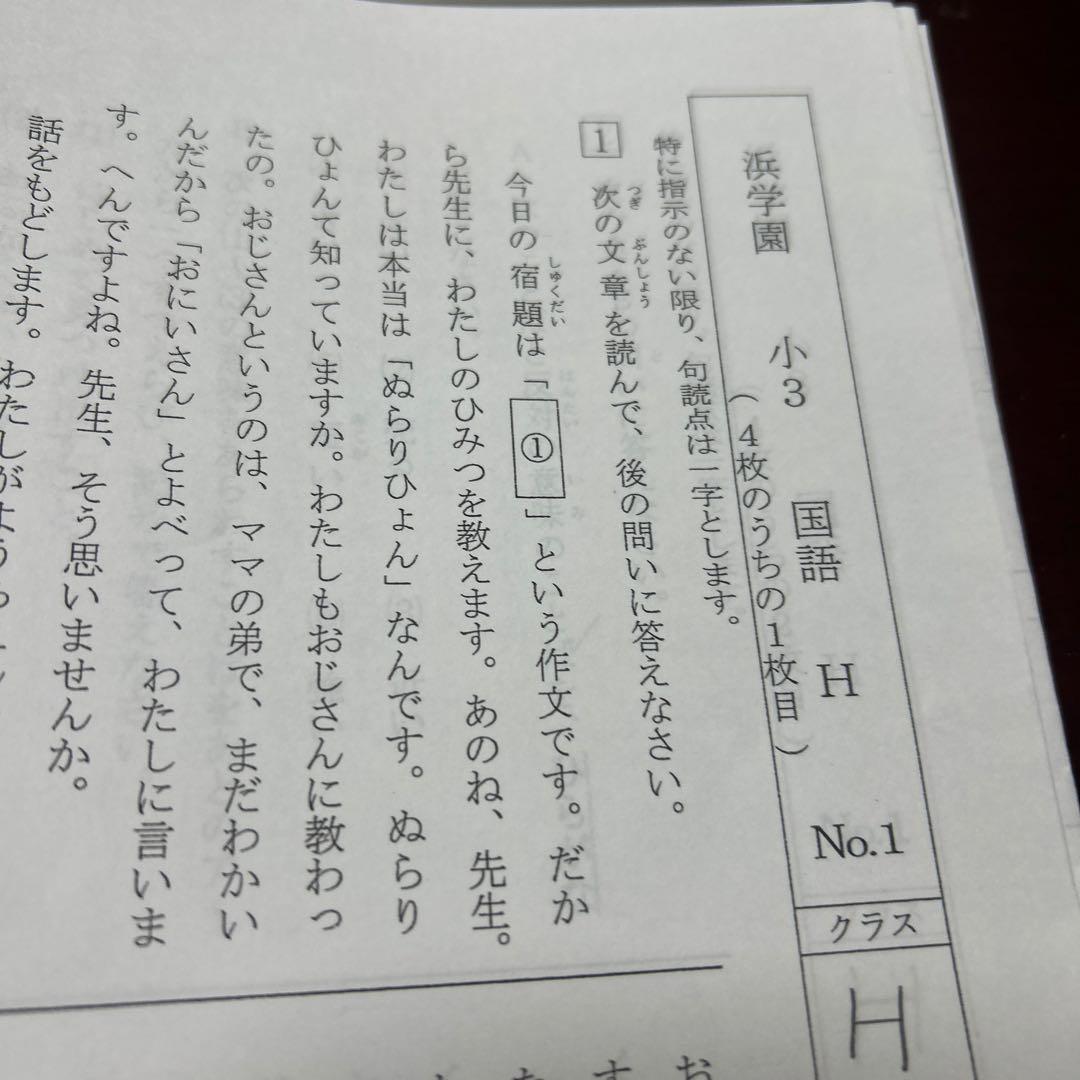 浜学園 小3 国語 H No.1
(4枚のうちの1枚目)
クラス
H
特に指示のない限り、句読点は一字とします。
1 次の文章を読んで、後の問いに答えなさい。
今日の宿題は「①」という作文です。だか
ら先生に、わたしのひみつを教えます。あのね、先生。
わたしは本当は「ぬらりひょん」なんです。ぬらり
ひょんて知っていますか。わたしもおじさんに教わっ
たの。おじさんというのは、ママの弟で、まだわかい
んだから「おにいさん」とよべって、わたしに言いま
す。へんですよね。先生、そう思いませんか。
話をもどします。わたしがようち